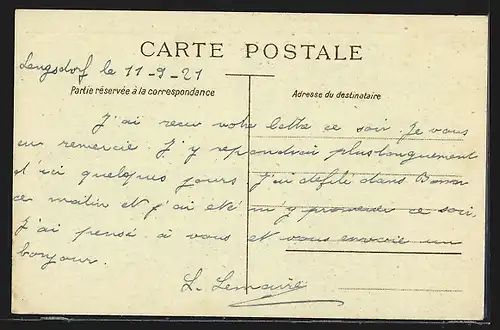 CARTE POSTALE
Lengsdorf le 11-9-21
Partie réservée à la correspondance
Adresse du destinataire
J'ai recu votre lettre ce soir. Je vous
en remercie. J'y repondrai pluslonguement
d'ici quelques jours J'ai defilé dans Bonn
ce matin et j'ai eté m'y promener ce soir.
J'ai pensé à vous et vous envoie un
bonjour.
L. Lemaire